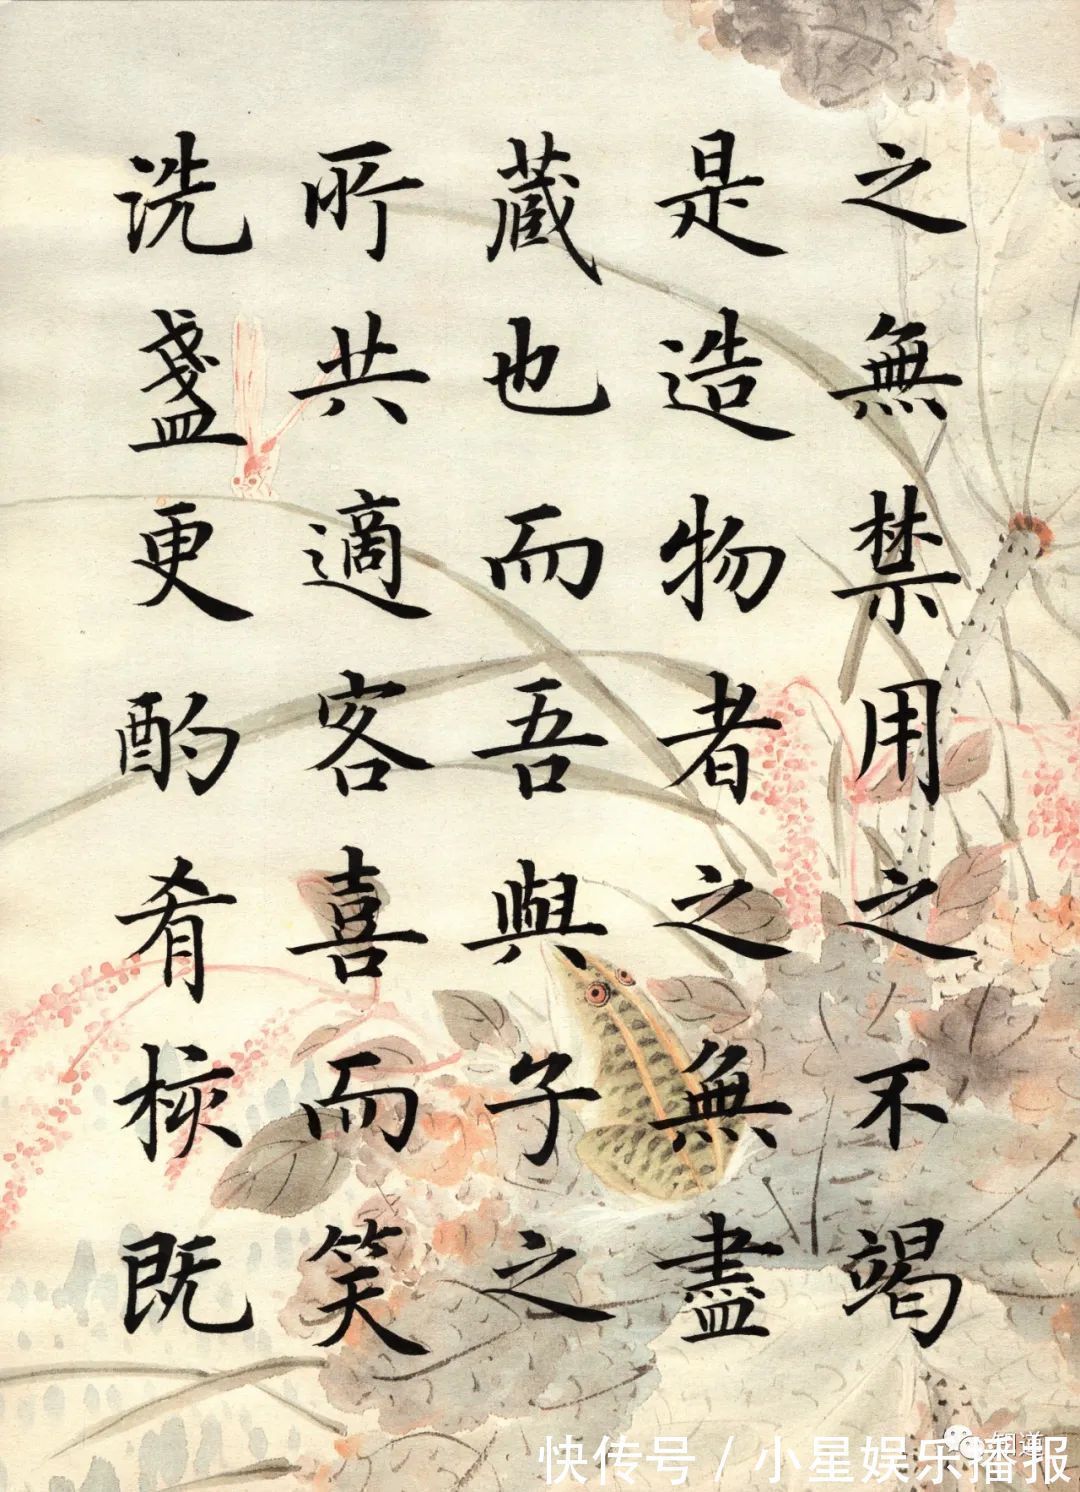 之無禁用之不竭
是造物者之無盡
藏也而吾與子之
所共適客喜而笑
洗盞更酌肴核既
知道
快传号 / 小星娱乐播报